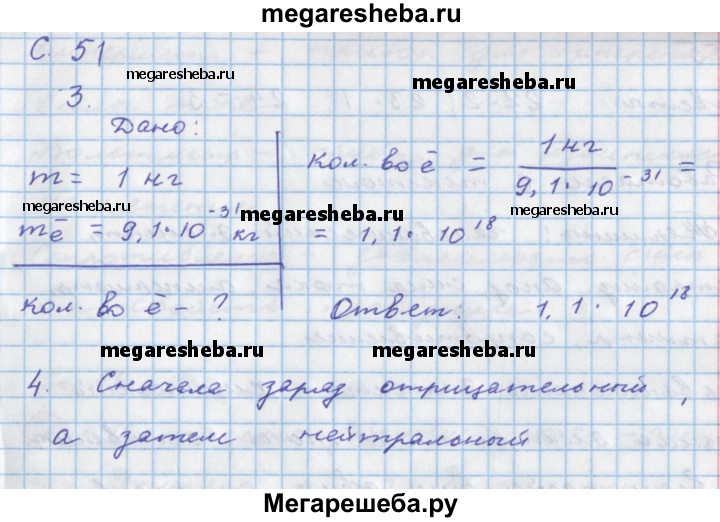 megaresheba.ru
С. 51
megaresheba.ru
megaresheba.ru
3.
Дано:
m = 1 нг
mē = 9,1·10⁻³¹ кг
кол. во ē - ?
кол. во ē = 1 нг / 9,1·10⁻³¹ =
= 1,1·10¹⁸
Ответ: 1,1·10¹⁸
megaresheba.ru
megaresheba.ru
megaresheba.ru
megaresheba.ru
megaresheba.ru
megaresheba.ru
4. Сначала заряд отрицательный,
а затем нейтральный
Мегарешеба.ру